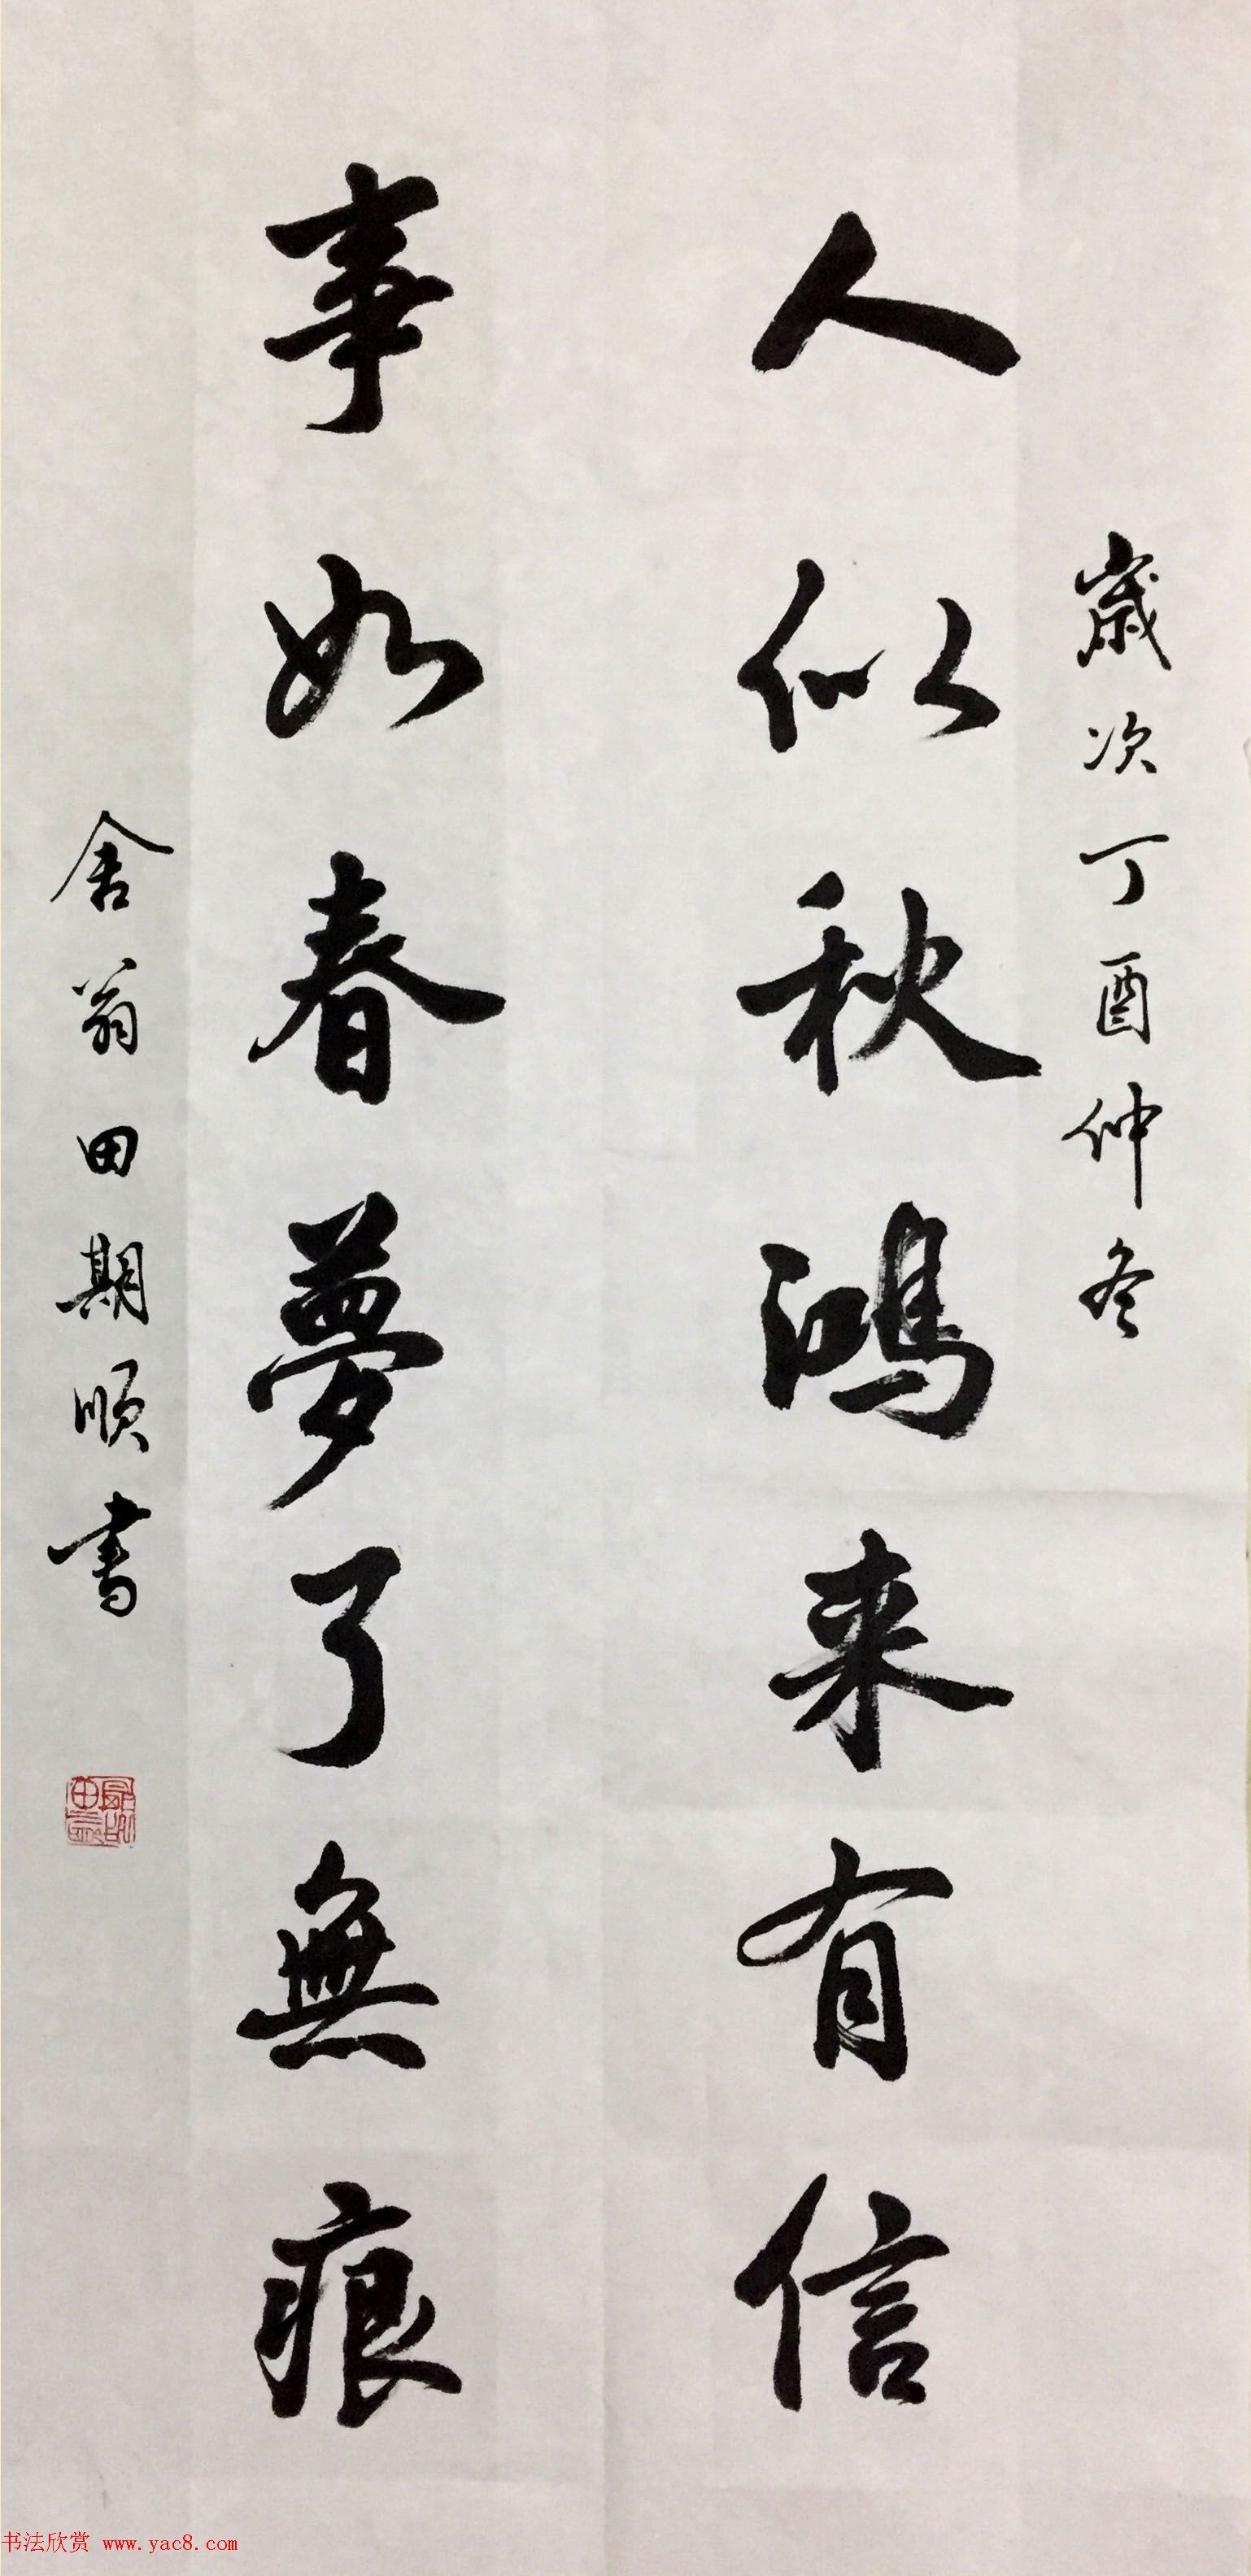 歲次丁酉仲冬
人似秋鴻来有信
事如春夢了無痕
舍翁田期顺書
书法欣赏 www.yac8.com